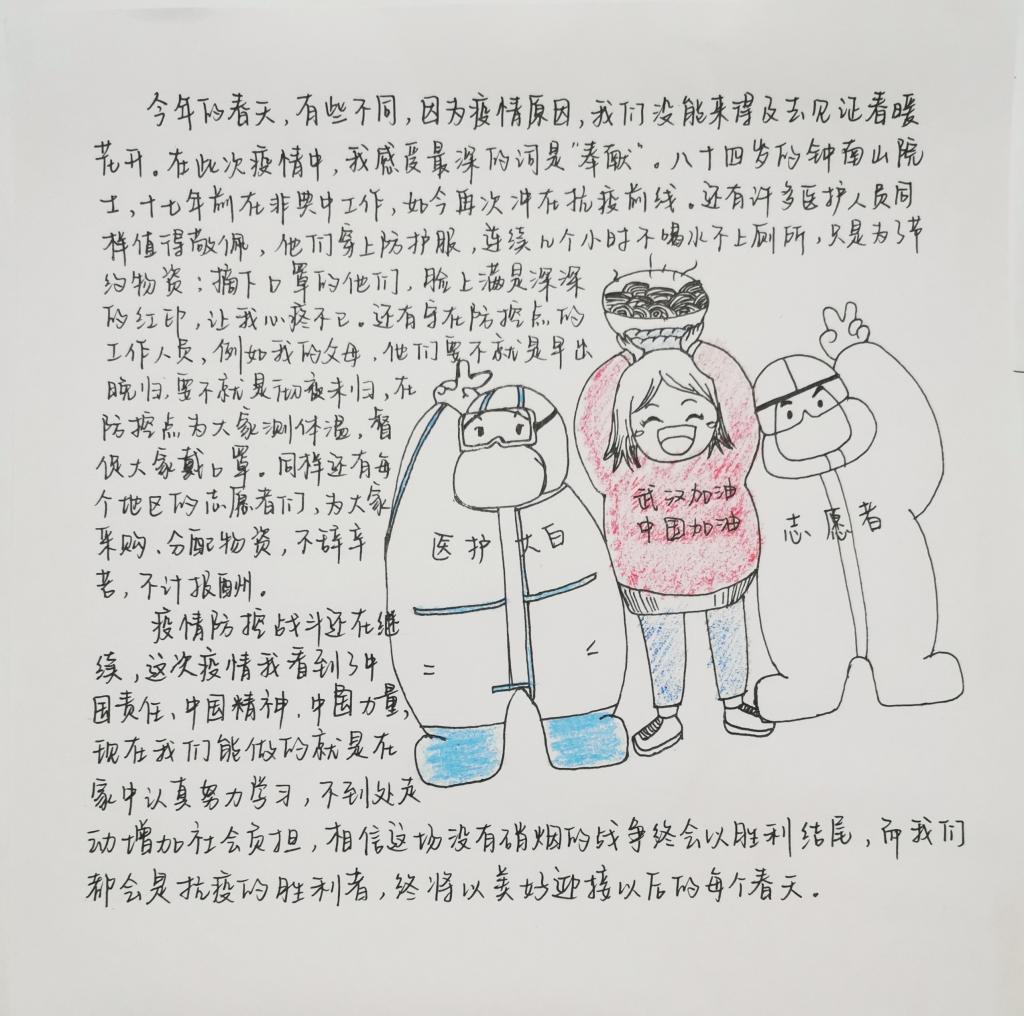 今年的春天，有些不同，因为疫情原因，我们没能来得及去见证春暖
花开。在此次疫情中，我感受最深的词是“奉献”。八十四岁的钟南山院
士，十七年前在非典中工作，如今再次冲在抗疫前线。还有许多医护人员同
样值得敬佩，他们穿上防护服，连续几个小时不喝水不上厕所，只是为了节
约物资；摘下口罩的他们，脸上满是深深
的红印，让我心疼不已。还有守在防控点的
工作人员，例如我的父母，他们要不就是早出
晚归，要不就是彻夜未归，在
防控点为大家测体温，督
促大家戴口罩。同样还有每
个地区的志愿者们，为大家
采购、分配物资，不辞辛
苦，不计报酬。
疫情防控战斗还在继
续，这次疫情我看到了中
国责任、中国精神、中国力量，
现在我们能做的就是在
家中认真努力学习，不到处走
动增加社会负担，相信这场没有硝烟的战争终会以胜利结尾，而我们
都会是抗疫的胜利者，终将以美好迎接以后的每个春天。
武汉加油
中国加油
医护大白
志愿者